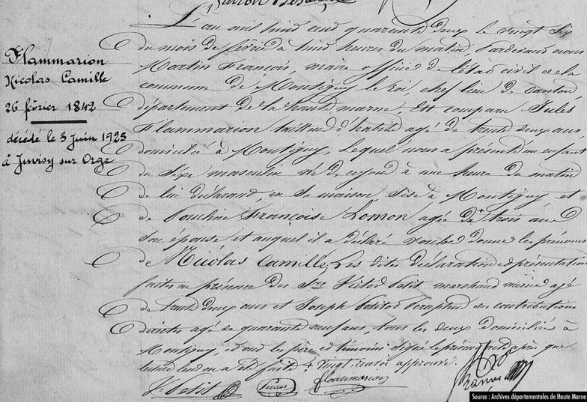 Flammarion
Nicolas Camille
26 février 1842
décédé le 3 juin 1925
à Juvisy sur Orge
L'an mil huit cent quarante deux le vingt six
du mois de février à huit heures du matin, pardevant nous
Martin François, maire officier de l'état civil de la
commune de Montigny le roi, chef lieu de canton
département de la haute marne, est comparu Jules
Flammarion âgé de trente deux ans
domicilié à Montigny, lequel nous a présenté un enfant
de sexe masculin né à une heure du matin
de lui déclarant, en sa maison sise à Montigny et
de Françoise Lomon agée de trois ans
son épouse et auquel il a déclaré vouloir donner les prénoms
de Nicolas Camille, Les dites déclaration et présentation
faites en présence des Srs Petit marchand agé
de trente deux ans et Joseph des contributions
agé de quarante neuf ans, tous les deux domiciliés à
Montigny, et ont les père et témoins signé le présent acte après que
lecture en a été faite
Flammarion
Source : Archives départementales de Haute Marne